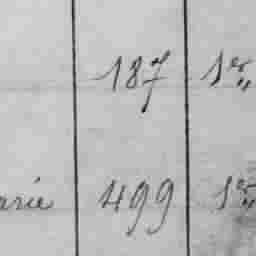 187 1er
arie 499 1er